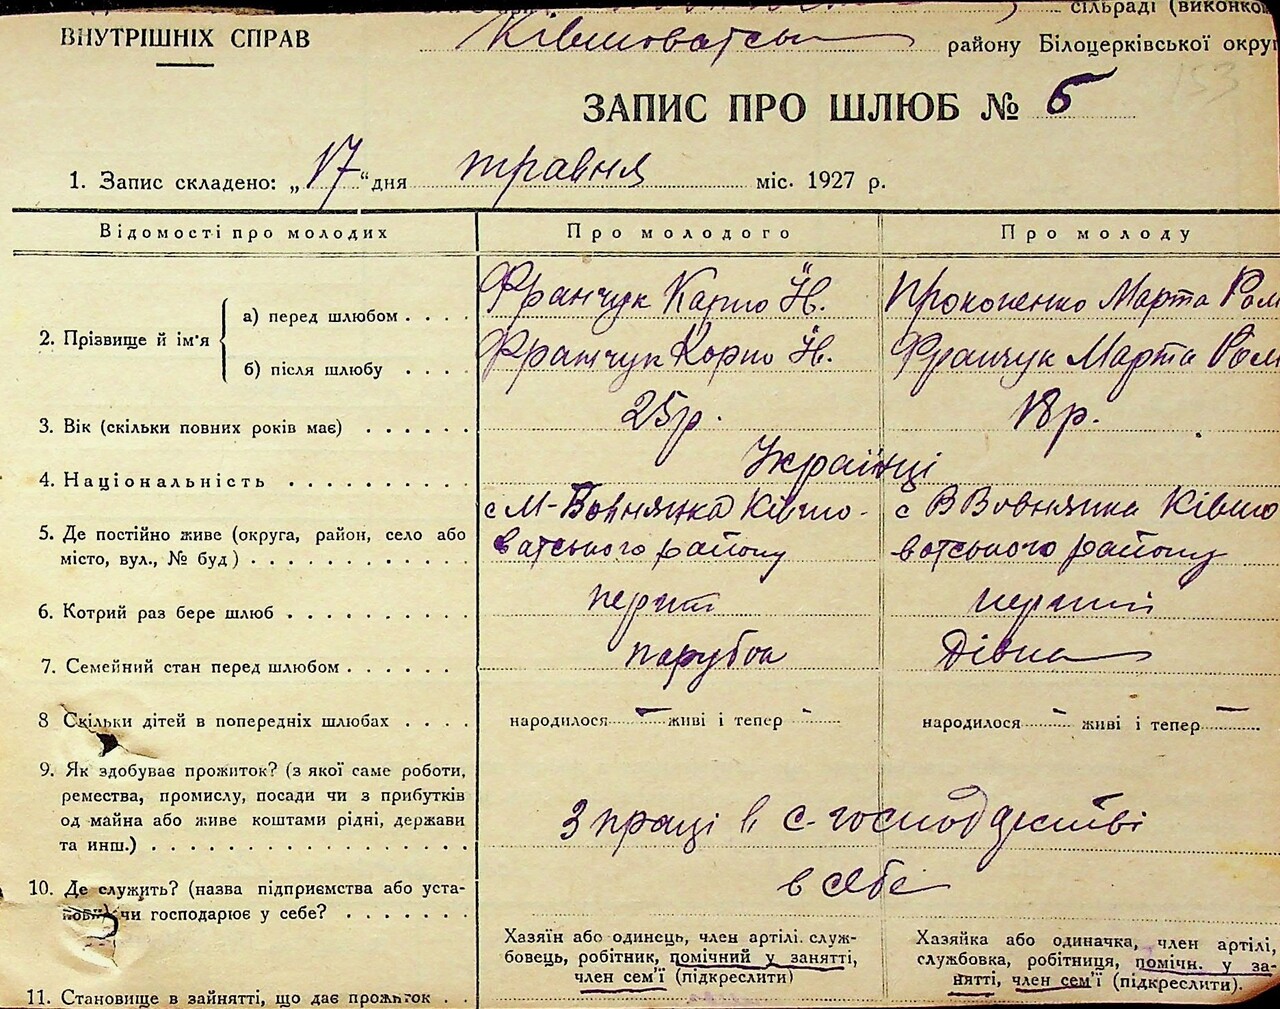 сільраді (виконко
ВНУТРІШНІХ СПРАВ Ківшоватсь району Білоцерківської окру
153
ЗАПИС ПРО ШЛЮБ № 5
1. Запис складено: „17“ дня травня міс. 1927 р.
Відомості про молодих Про молодого Про молоду
2. Прізвище й ім'я
а) перед шлюбом . . . . Франчук Карпо Й. Прокопенко Марта Ром
б) після шлюбу . . . . Франчук Корпо Й. Франчук Марта Ром
3. Вік (скільки повних років має) . . . . . . 25 р. 18 р.
4. Національність . . . . . . . . . . Українці
5. Де постійно живе (округа, район, село або с М-Вовнянка Ківшо- с В Вовнянка Ківшо
місто, вул., № буд) . . . . . . . . . . . ватського району вотського району
6. Котрий раз бере шлюб . . . . . . . . . . перший перший
7. Семейний стан перед шлюбом . . . . . . . парубок дівка
8 Скільки дітей в попередніх шлюбах . . . . народилося - живі і тепер - народилося - живі і тепер -
9. Як здобуває прожиток? (з якої саме роботи,
ремества, промислу, посади чи з прибутків
од майна або живе коштами рідні, держави
та инш.) . . . . . . . . . . . . . . . . . .
З праці в с-господарстві
10. Де служить? (назва підприємства або уста-
нови) чи господарює у себе? . . . . . . .
в себе
Хазяїн або одинець, член артілі. служ-
бовець, робітник, помічний у занятті,
член сем'ї (підкреслити)
Хазяйка або одиначка, член артілі,
службовка, робітниця, помічн. у за-
нятті, член сем'ї (підкреслити).
11. Становище в зайнятті, що дає прожиток . .